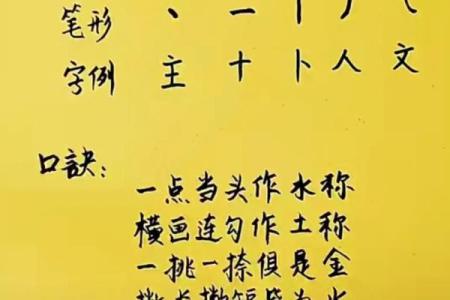 笔形 丶 一 丨 丿 ㇏
字例 主 十 卜 人 文
口訣:
一点当头作水称
横画连勾作土称
一挑一捺俱是金
撇长撇短皆为火